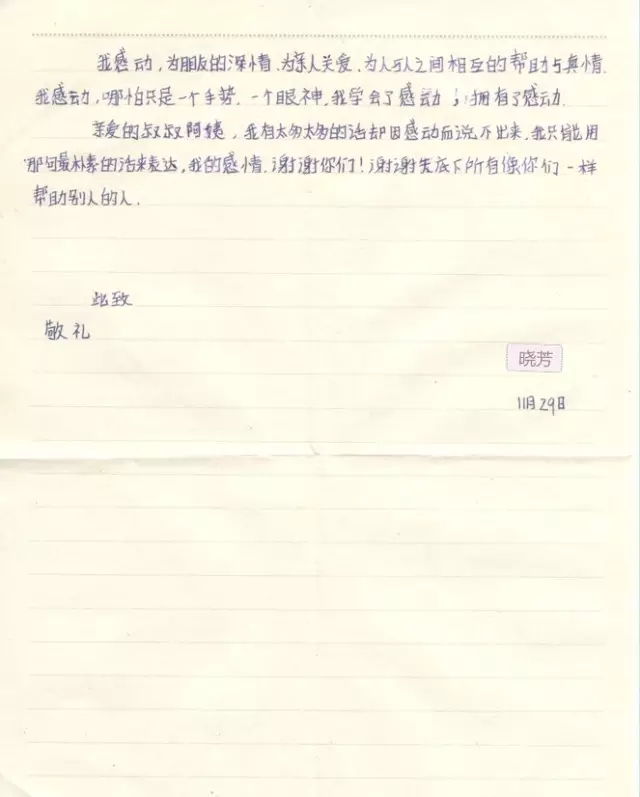 我感动，为朋友的深情.为亲人关爱.为人与人之间相互的帮助与真情.
我感动，哪怕只是一个手势.一个眼神.我学会了感动；拥有了感动.
亲爱的叔叔阿姨，我有太多太多的话却因感动而说不出来.我只能用
那句最朴素的话来表达，我的感情.谢谢你们！谢谢天底下所有像你们一样
帮助别人的人.
此致
敬礼
晓芳
11月29日